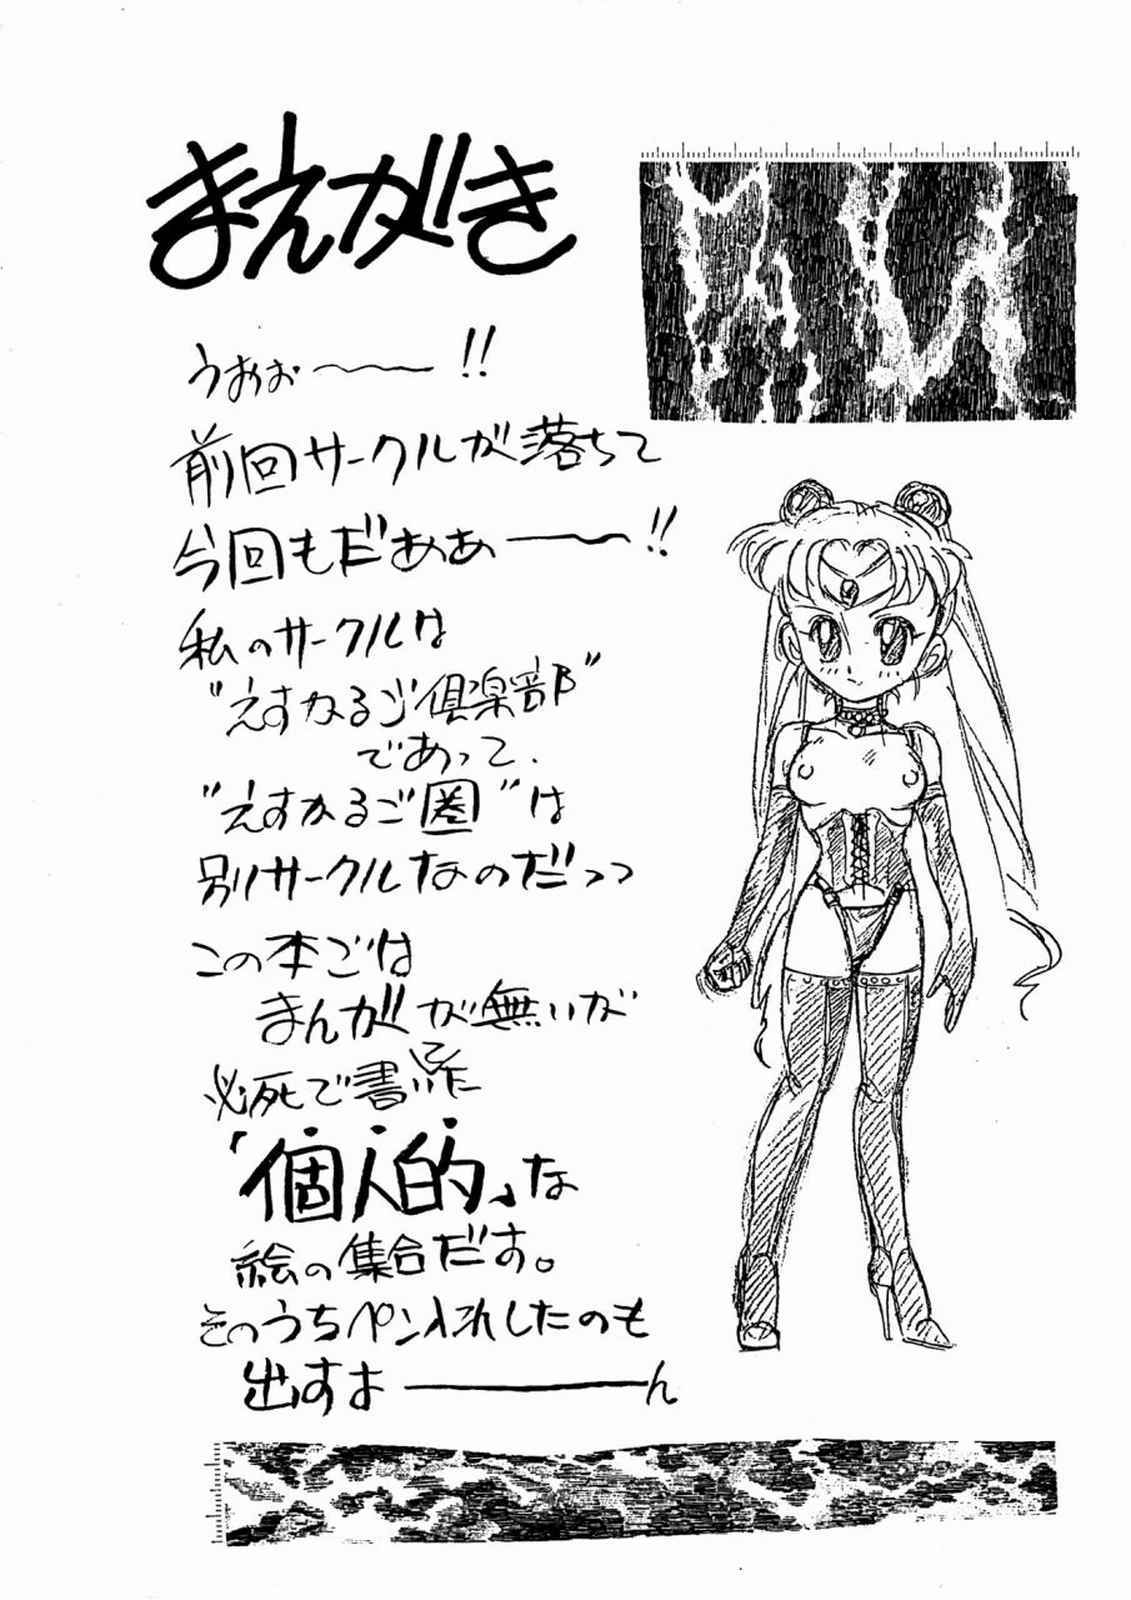 まえがき
うおぉ〜〜!!
前回サークルが落ちて
今回もだぁあ〜〜!!
私のサークルは
"えすかるご倶楽部"
であって、
"えすかるご圏"は
別サークルなのだっっ
この本では
まんがが無いが
必死で書いた
「個人的」な
絵の集合だす。
そのうちペン入れしたのも
出すよ――――ん